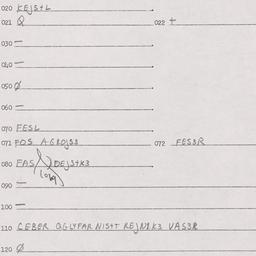 020 KEJS+L
021 Q 022 +
030 —
040 —
050 Ø
060 —
070 FESL
071 FOS AGROJS3 072 FES3R
080 FAS DEJS+K3
090 —
100 —
110 CEBER QGLYFAR NIS+T REJN2K3 VAS3R
120 Ø